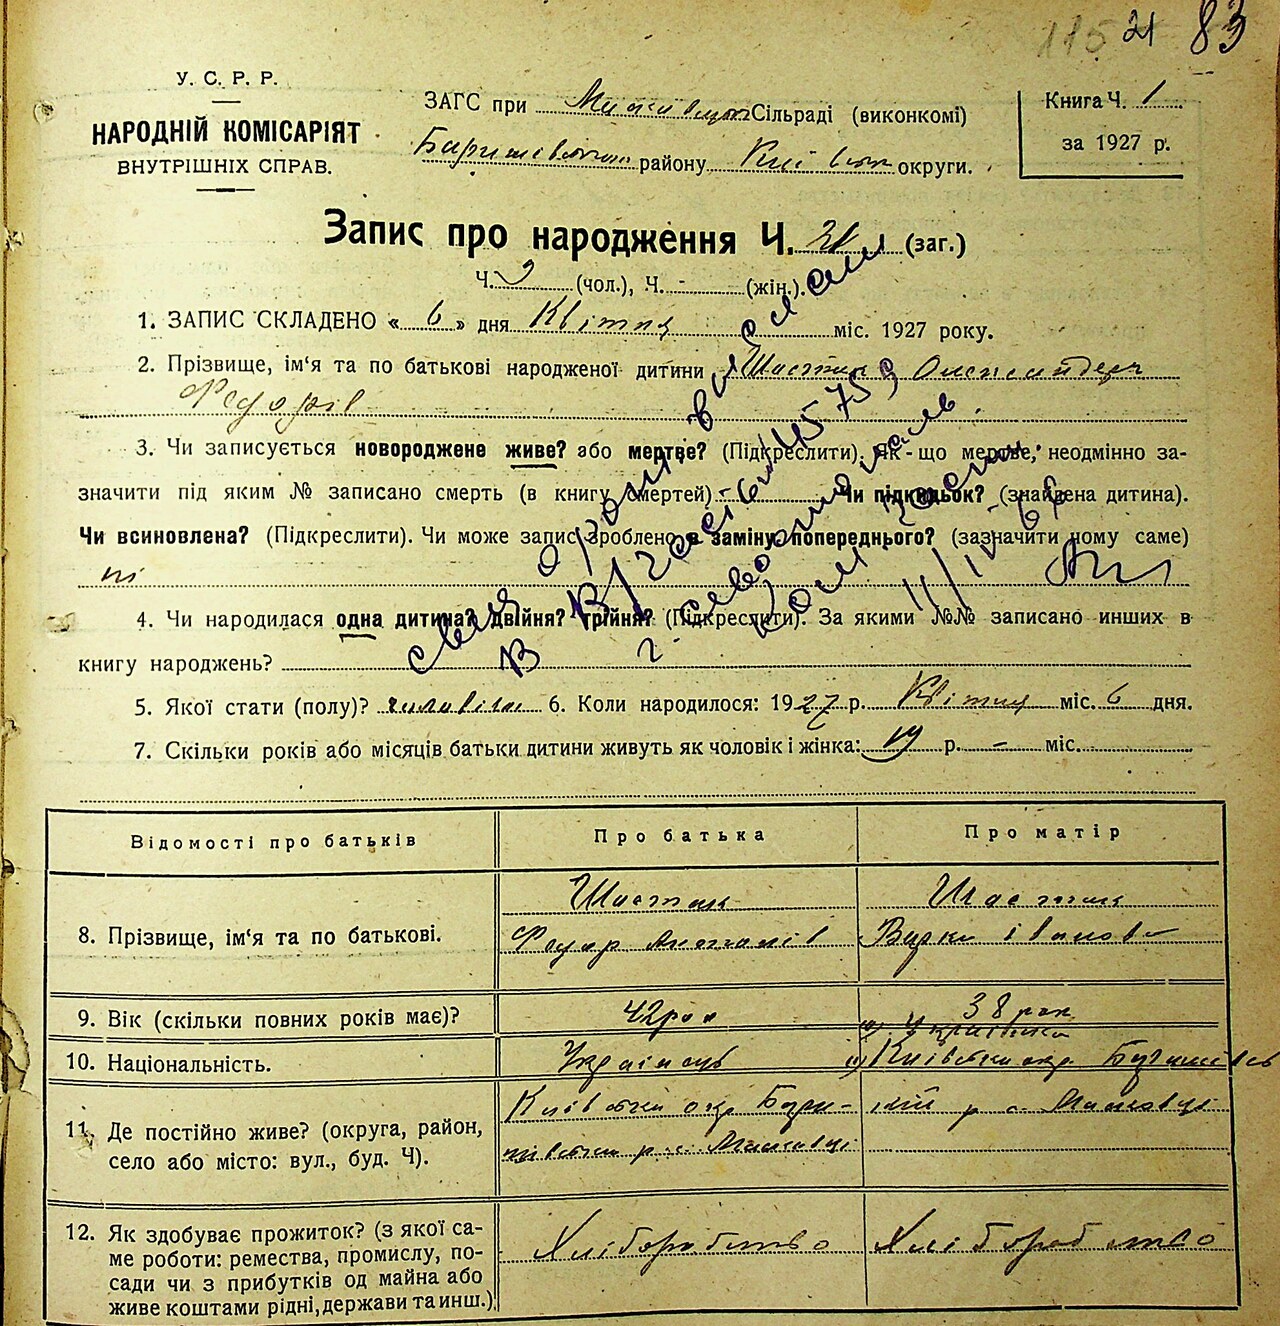 115 21 83
У. С. Р. Р.
НАРОДНІЙ КОМІСАРІЯТ
ВНУТРІШНІХ СПРАВ.
ЗАГС при Сільраді (виконкомі)
району округи.
Книга Ч. 1
за 1927 р.
Запис про народження Ч. 21 (заг.)
Ч. 9 (чол.), Ч. - (жін.).
1. ЗАПИС СКЛАДЕНО « 6 » дня Квітня міс. 1927 року.
2. Прізвище, ім'я та по батькові народженої дитини Шостак Олександер
Федорів
3. Чи записується новороджене живе? або мертве? (Підкреслити). Як-що мертве, неодмінно за-
значити під яким № записано смерть (в книгу смертей) Чи підкидьок? (знайдена дитина).
Чи всиновлена? (Підкреслити). Чи може запис зроблено в заміну попереднього? (зазначити чому саме)
ні
4. Чи народилася одна дитина? двійня? трійня? (Підкреслити). За якими №№ записано инших в
книгу народжень?
5. Якої стати (полу)? 6. Коли народилося: 1927 р. Квітня міс. 6 дня.
7. Скільки років або місяців батьки дитини живуть як чоловік і жінка: 19 р. - міс.
11/IV-
Відомості про батьків Про батька Про матір
8. Прізвище, ім'я та по батькові. Шостак Шостак
Федор Іванова
9. Вік (скільки повних років має)? 42 рок 38 рок
10. Національність. Українець Українка
11. Де постійно живе? (округа, район,
село або місто: вул., буд. Ч).
12. Як здобуває прожиток? (з якої са-
ме роботи: ремества, промислу, по-
сади чи з прибутків од майна або
живе коштами рідні, держави та инш.)
Хліборобство Хліборобство